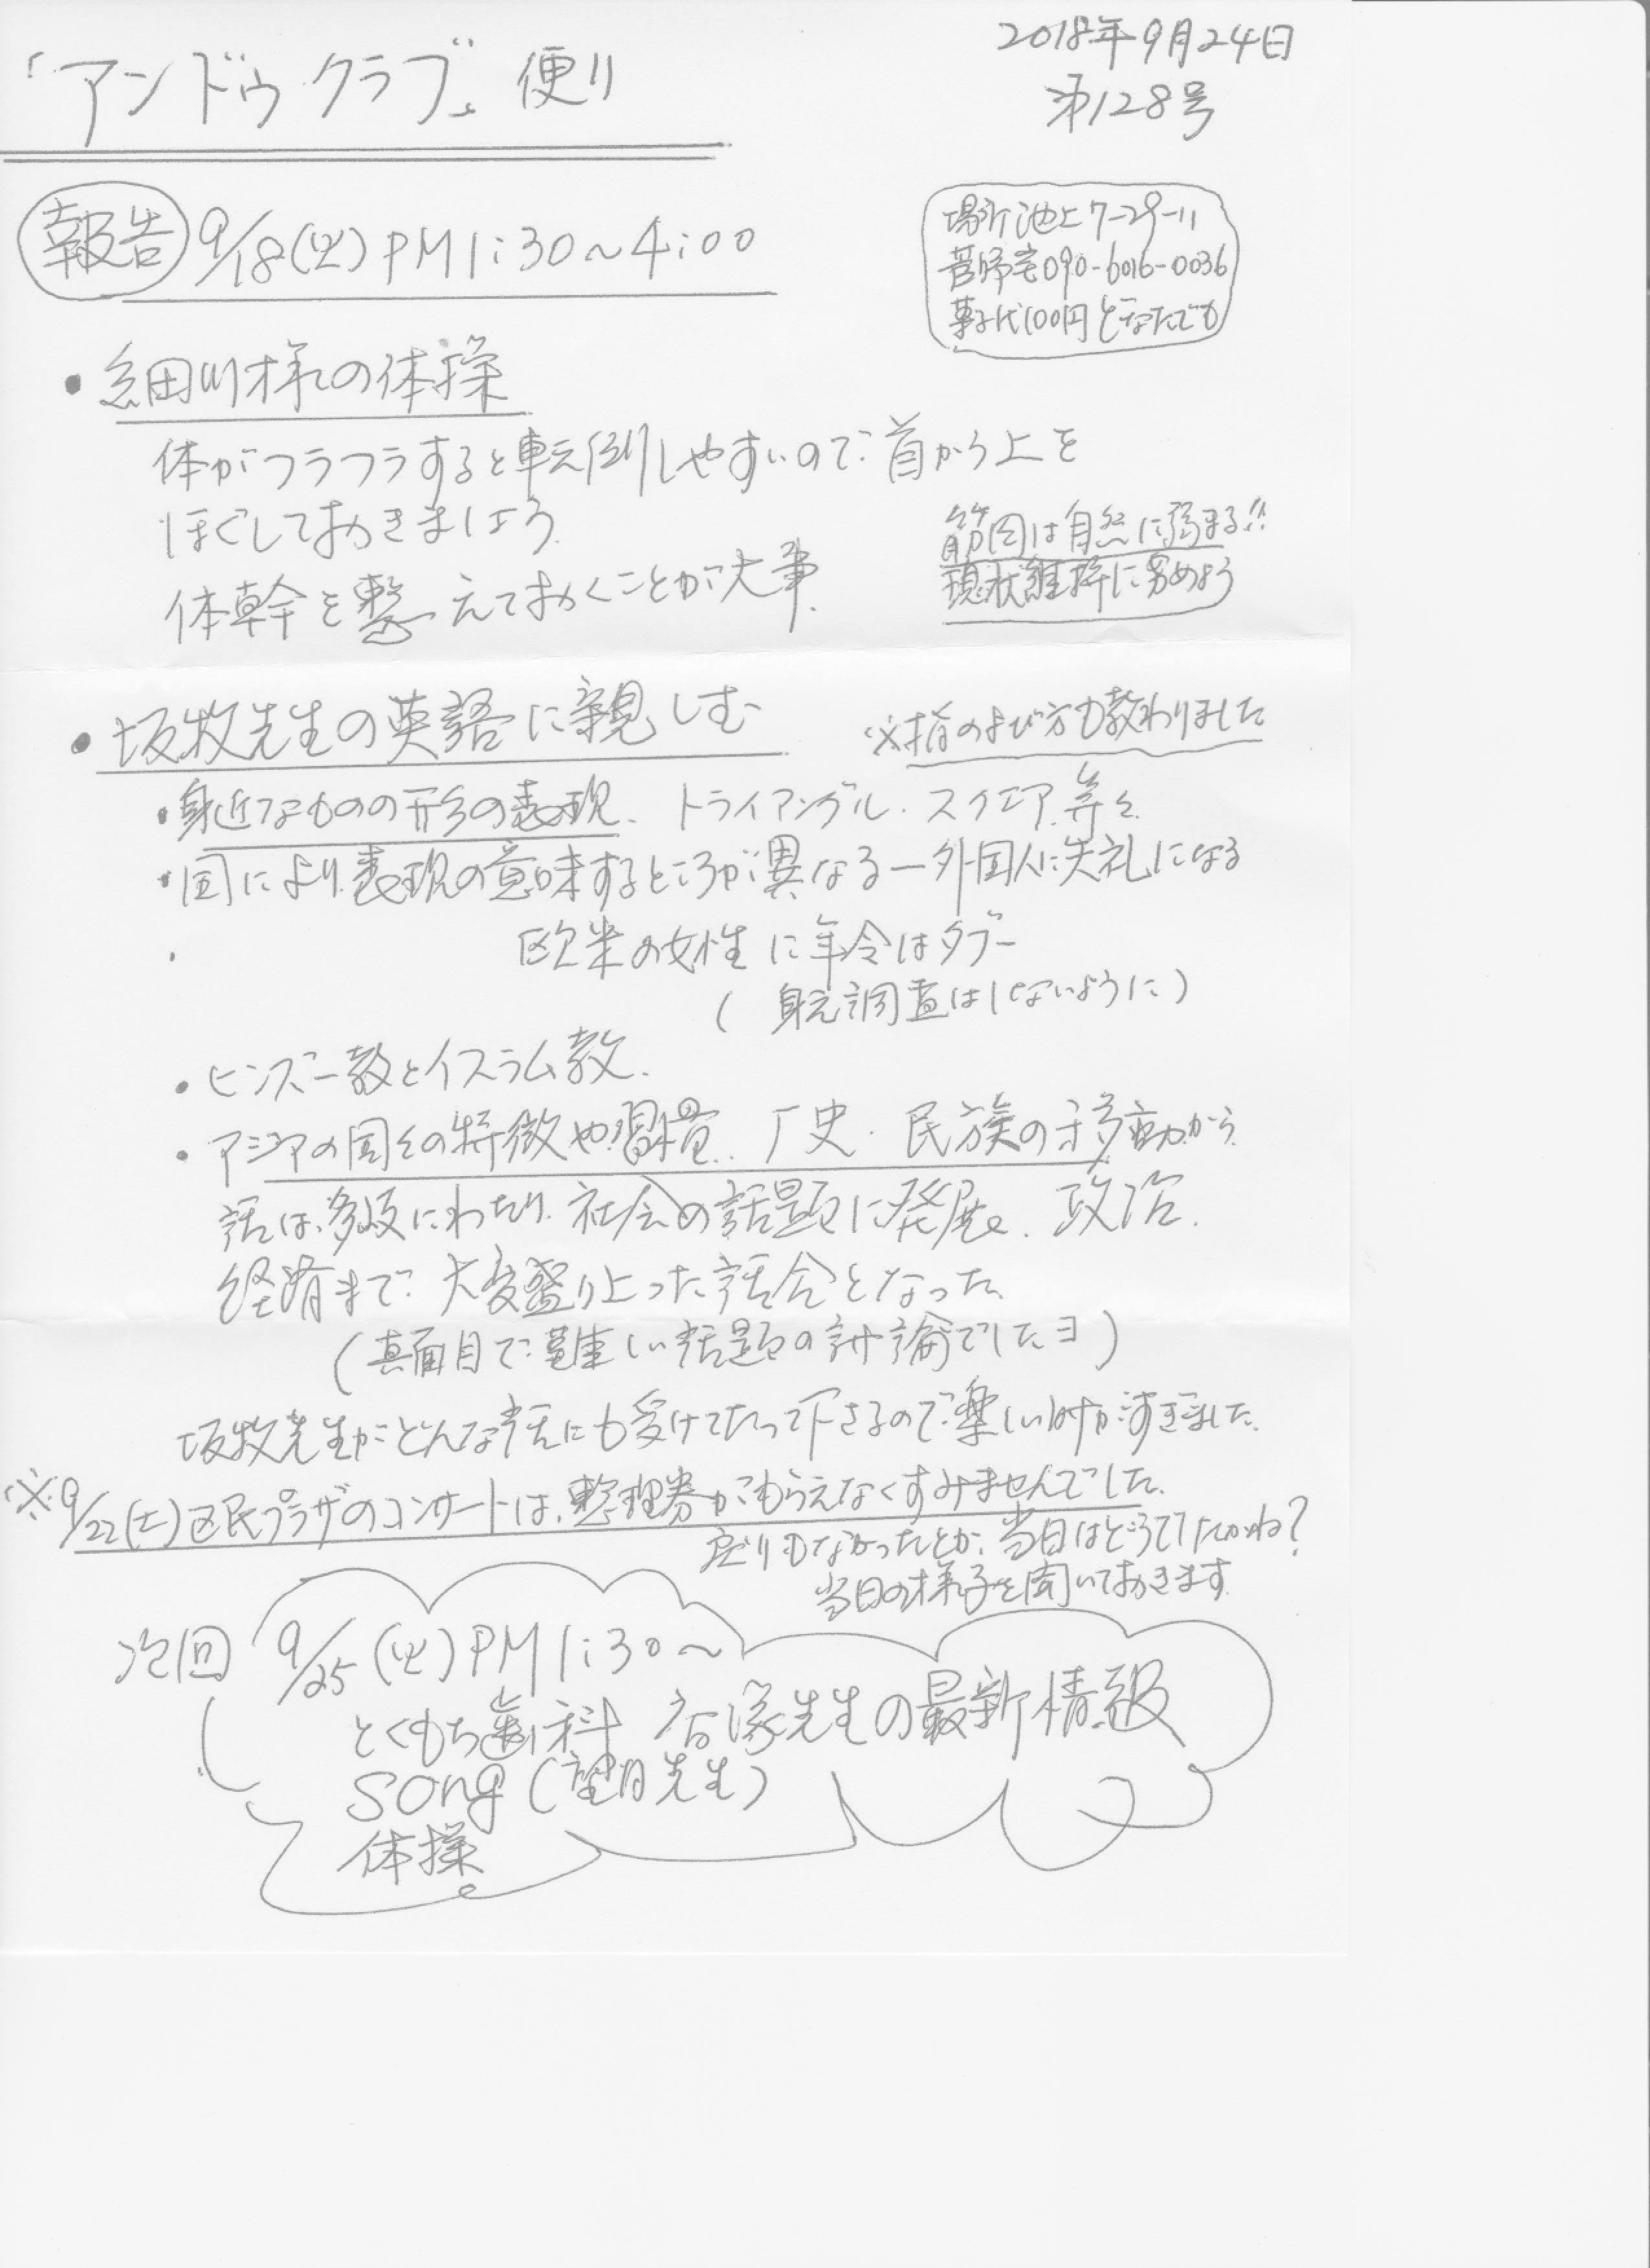 「アンドゥクラブ」便り
2018年9月24日
第128号
報告 9/18(火)PM1:30〜4:00
場所池上7-29-11
菅帰宅090-6016-0036
菓子代100円どなたでも
・細川様の体操
体がフラフラすると転倒しやすいので首から上を
ほぐしておきましょう
体幹を整えておくことが大事.
筋肉は自然に弱まる!!
現状維持に努めよう
・坂牧先生の英語に親しむ
※指のよび方も教わりました
・身近なものの形の表現、トライアングル.スクエア.等々
・国により表現の意味するところが異なるー外国人に失礼になる
欧米の女性に年令はタブー
(身元調査はしないように)
・ヒンズー教とイスラム教.
・アジアの国々の特徴や習慣..厂史.民族の移動から
話は、多岐にわたり.社会の話題に発展.政治.
経済まで大変盛り上った話合となった、
(真面目で難しい話題の討論でしたヨ)
坂牧先生がどんな話にも受けてたって下さるので楽しい時がすぎました.
※9/22(土)区民プラザのコンサートは、整理券がもらえなくすみませんでした.
戻りもなかったとか、当日はどうでしたかね?
当日の様子を聞いておきます.
次回 9/25(火)PM1:30〜
とくもち歯科 先生の最新情報
song(望月先生)
体操